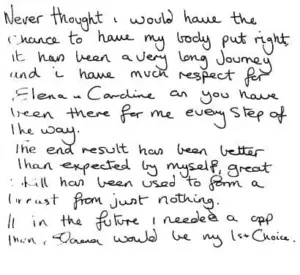 Never thought i would have the
chance to have my body put right,
it has been a very long Journey
and i have much respect for
Elena & Caroline as you have
been there for me every step of
the way.
The end result has been better
than expected by myself, great
skill has been used to form a
breast from just nothing.
If in the future i needed a opp
then, would be my 1st Choice.